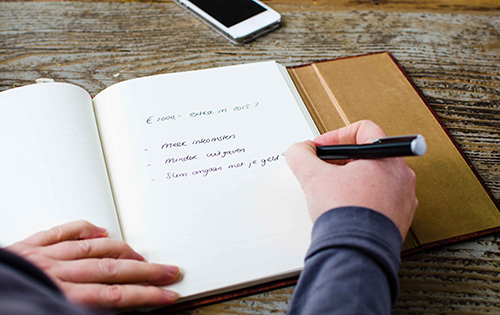 € 1000,- extra in 2015?
- Meer inkomsten
- Minder uitgaven
- Slim omgaan met je geld